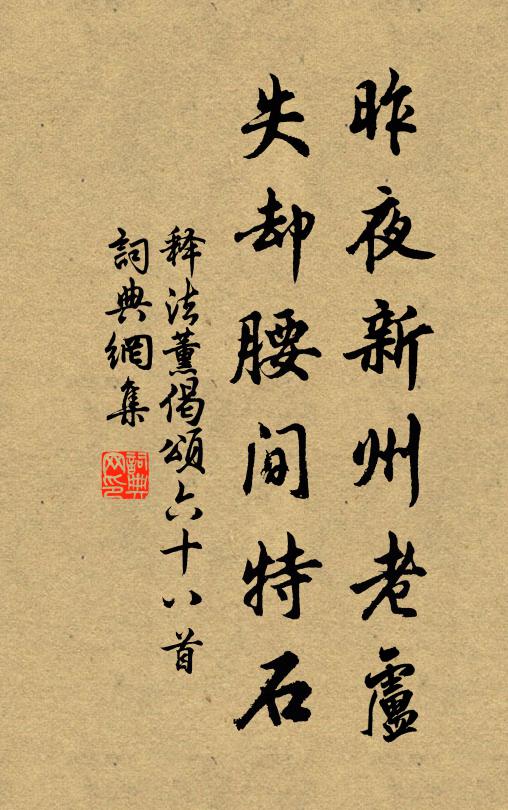 昨夜新州老盧
失却腰間特石
释法薰偈頌六十八首
詞典網集
詞典网印